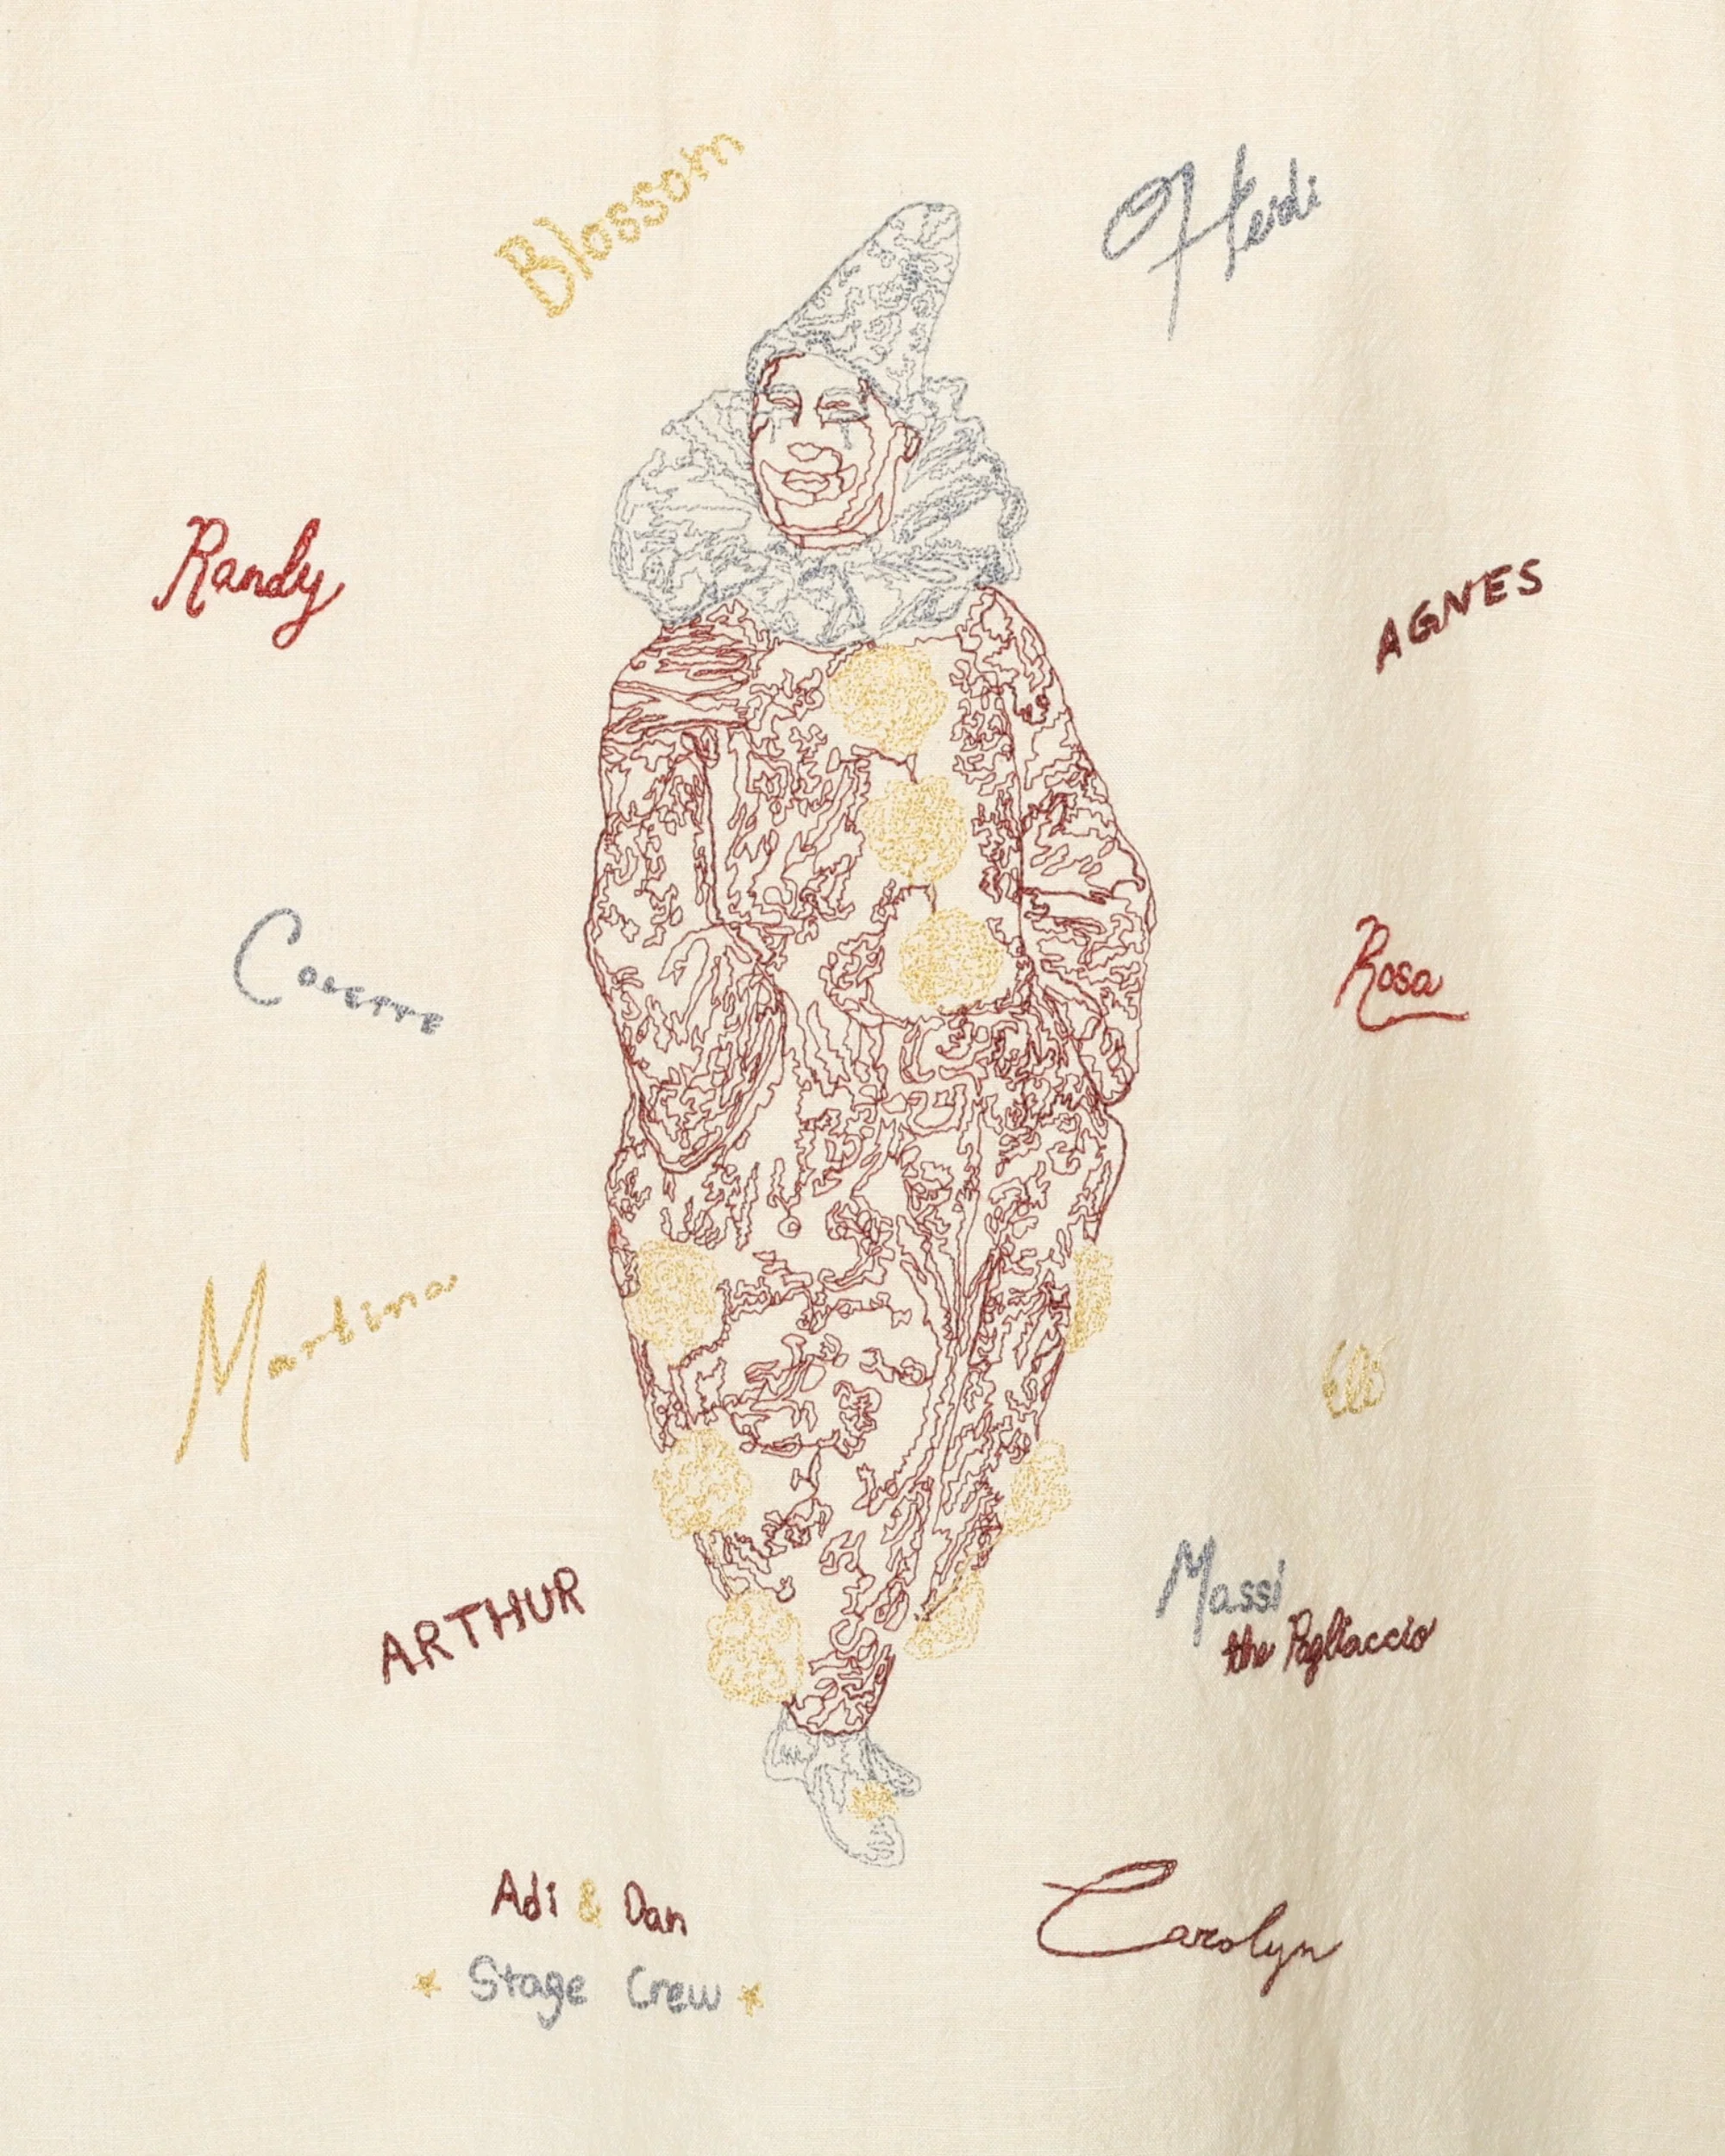 Blossom
Randy
AGNES
Rosa
Martina
ARTHUR
Massi
the Pagliaccio
Adi & Dan
Stage Crew
Carolyn